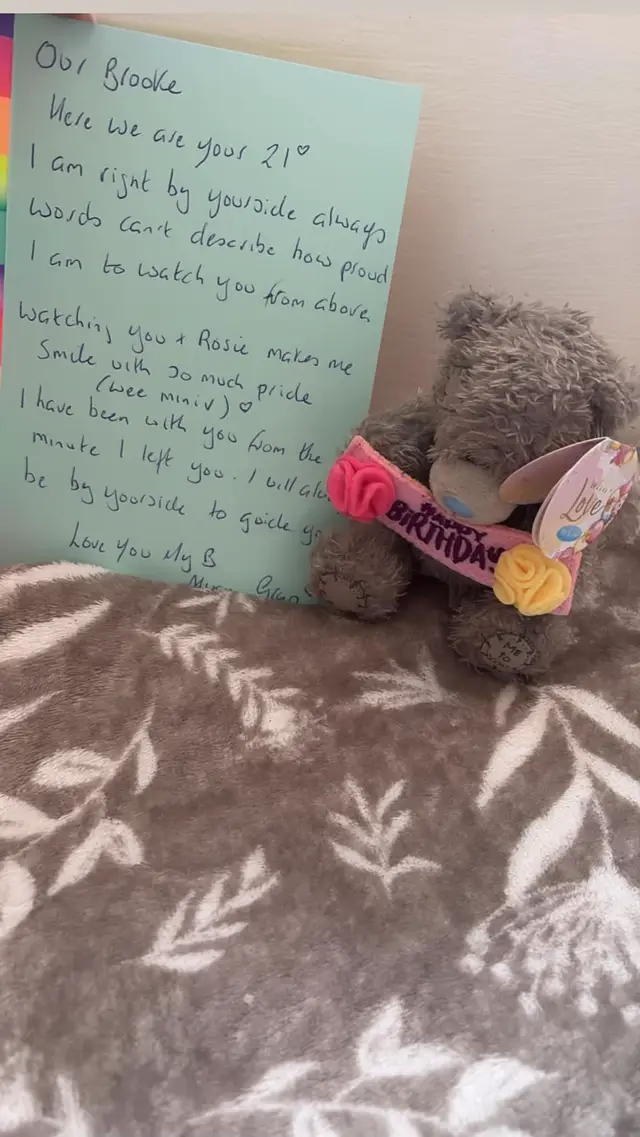 Our Brooke
Here we are your 21♡
I am right by yourside always
words can't describe how proud
I am to watch you from above
Watching you + Rosie makes me
Smile with so much pride
(wee mini v) ♡
I have been with you from the
minute I left you. I will
be by yourside to guide
Love You My B
HAPPY
BIRTHDAY
Love
ME
TO